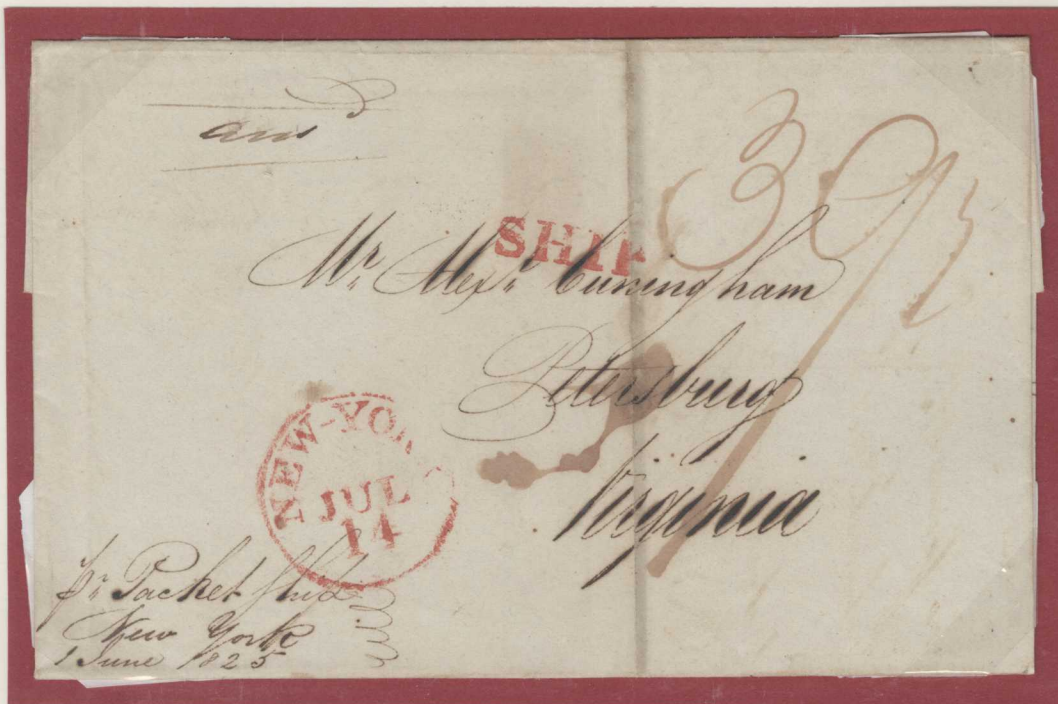 SHIP
Mr. Alexr. Cuningham
Petersburg
Virginia
NEW-YORK
JUL
14
pr. Packet Ship
New York
1 June 1825